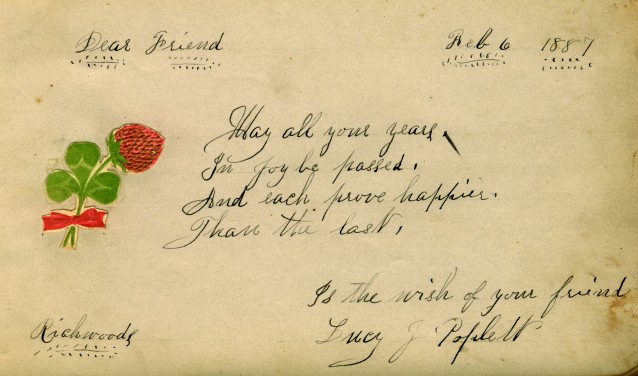 Dear Friend
Feb 6 1887
May all your years,
In joy be passed.
And each prove happier.
Than the last,
Is the wish of your friend
Lucy J. Poplett
Richwoods